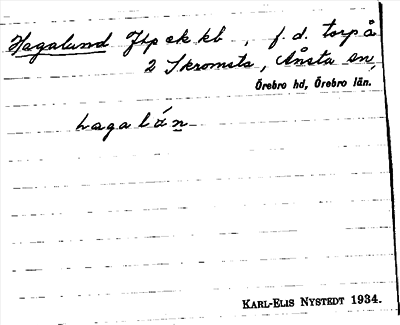 Hagalund Jtp ek kb, f. d. torp å
2 Skromsta, Ånsta sn,
Örebro hd, Örebro län.
hagalán
KARL-ELIS NYSTEDT 1934.